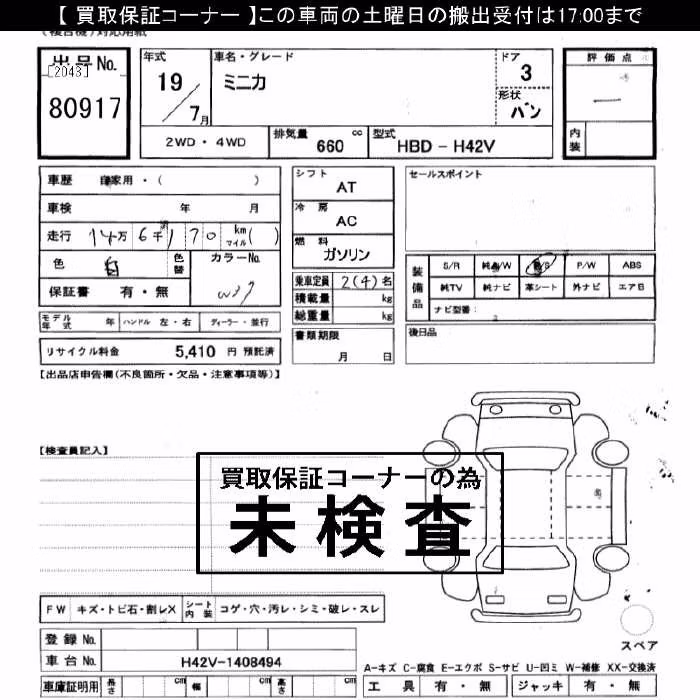 【 買取保証コーナー 】この車両の土曜日の搬出受付は17:00まで
出品No. [2043] 80917
年式 19/7月
車名・グレード ミニカ
ドア 3
形状 バン
評価点 一
内装
2WD・4WD
排気量 660 cc
型式 HBD-H42V
車歴 自家用・( )
車検 年 月
走行 14万6千170 km マイル( )
色 白
色替
カラーNo. W37
保証書 有・無
モデル年式 年 ハンドル 左・右 ディーラー・並行
リサイクル料金 5,410 円 預託済
シフト AT
冷房 AC
燃料 ガソリン
乗車定員 2(4)名
積載量 kg
総重量 kg
書類期限 月 日
セールスポイント
装備品
S/R 純A/W P/S P/W ABS
純TV 純ナビ 革シート 外ナビ エアB
ナビ型番:
後日品
【出品店申告欄(不良箇所・欠品・注意事項等)】
【検査員記入】
買取保証コーナーの為
未検査
FW キズ・トビ石・割レX
シート内装 コゲ・穴・汚レ・シミ・破レ・スレ
登録No.
車台No. H42V-1408494
車庫証明用 長さ cm 幅 cm 高さ cm
スペア
A-キズ C-腐食 E-エクボ S-サビ U-凹ミ W-補修 XX-交換済
工具 有・無 ジャッキ 有・無